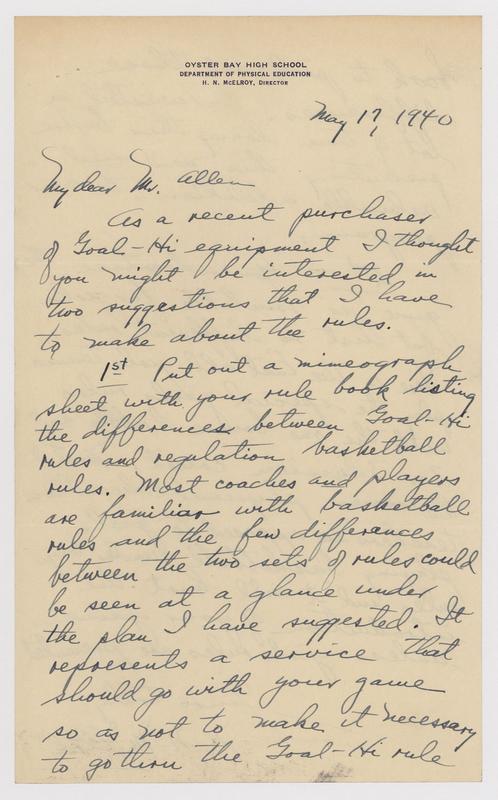 OYSTER BAY HIGH SCHOOL
DEPARTMENT OF PHYSICAL EDUCATION
H. N. McELROY, DIRECTOR
May 17, 1940
My dear Mr. Allen
As a recent purchaser
of Goal-Hi equipment I thought
you might be interested in
two suggestions that I have
to make about the rules.
1st Put out a mimeograph
sheet with your rule book listing
the differences between Goal-Hi
rules and regulation basketball
rules. Most coaches and players
are familiar with basketball
rules and the few differences
between the two sets of rules could
be seen at a glance under
the plan I have suggested. It
represents a service that
should go with your game
so as not to make it necessary
to go thru the Goal-Hi rule